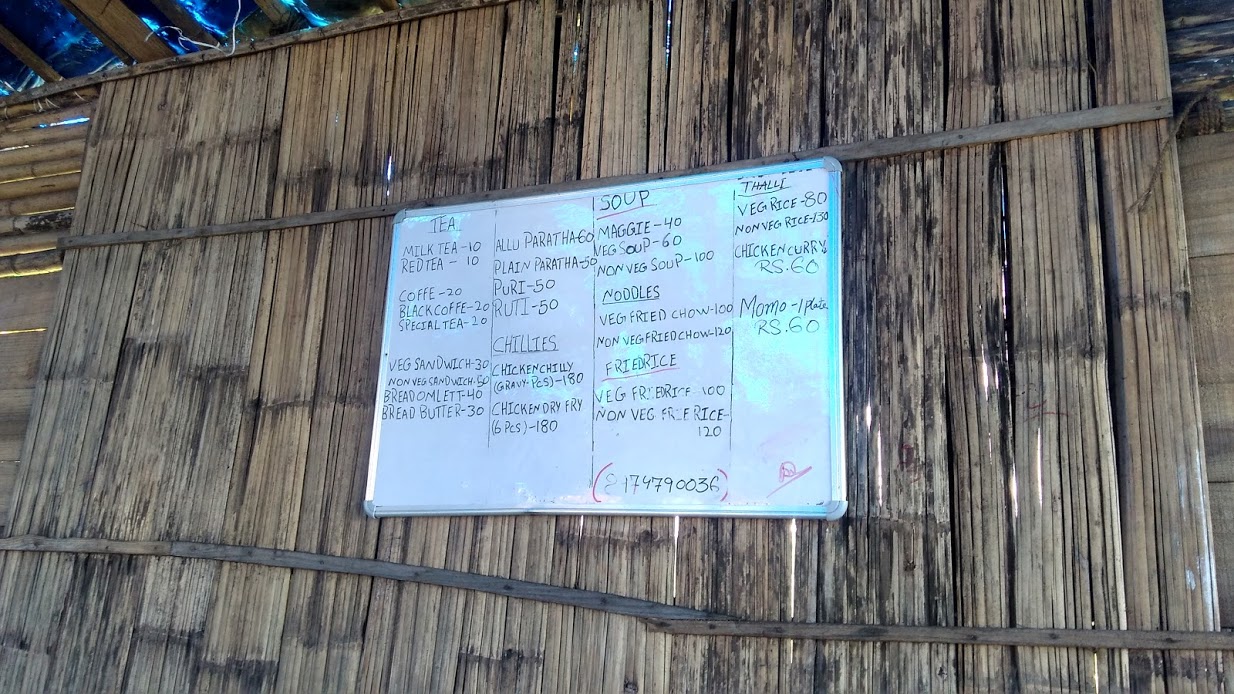 TEA
MILK TEA - 10
RED TEA - 10
COFFE - 20
BLACK COFFE - 20
SPECIAL TEA - 20
VEG SANDWICH - 30
NON VEG SANDWICH - 50
BREAD OMLETT - 40
BREAD BUTTER - 30
ALLU PARATHA - 60
PLAIN PARATHA - 50
PURI - 50
RUTI - 50
CHILLIES
CHICKEN CHILLY
(GRAVY - PCS) - 180
CHICKEN DRY FRY
(6 PCS) - 180
SOUP
MAGGIE - 40
VEG SOUP - 60
NON VEG SOUP - 100
NODDLES
VEG FRIED CHOW - 100
NON VEG FRIED CHOW - 120
FRIEDRICE
VEG FRIEDRICE - 100
NON VEG RICE -
120
174790036
THALLI
VEG RICE - 80
NON VEG RICE - 130
CHICKEN CURRY
RS. 60
MOMO - 1 plate
RS. 60